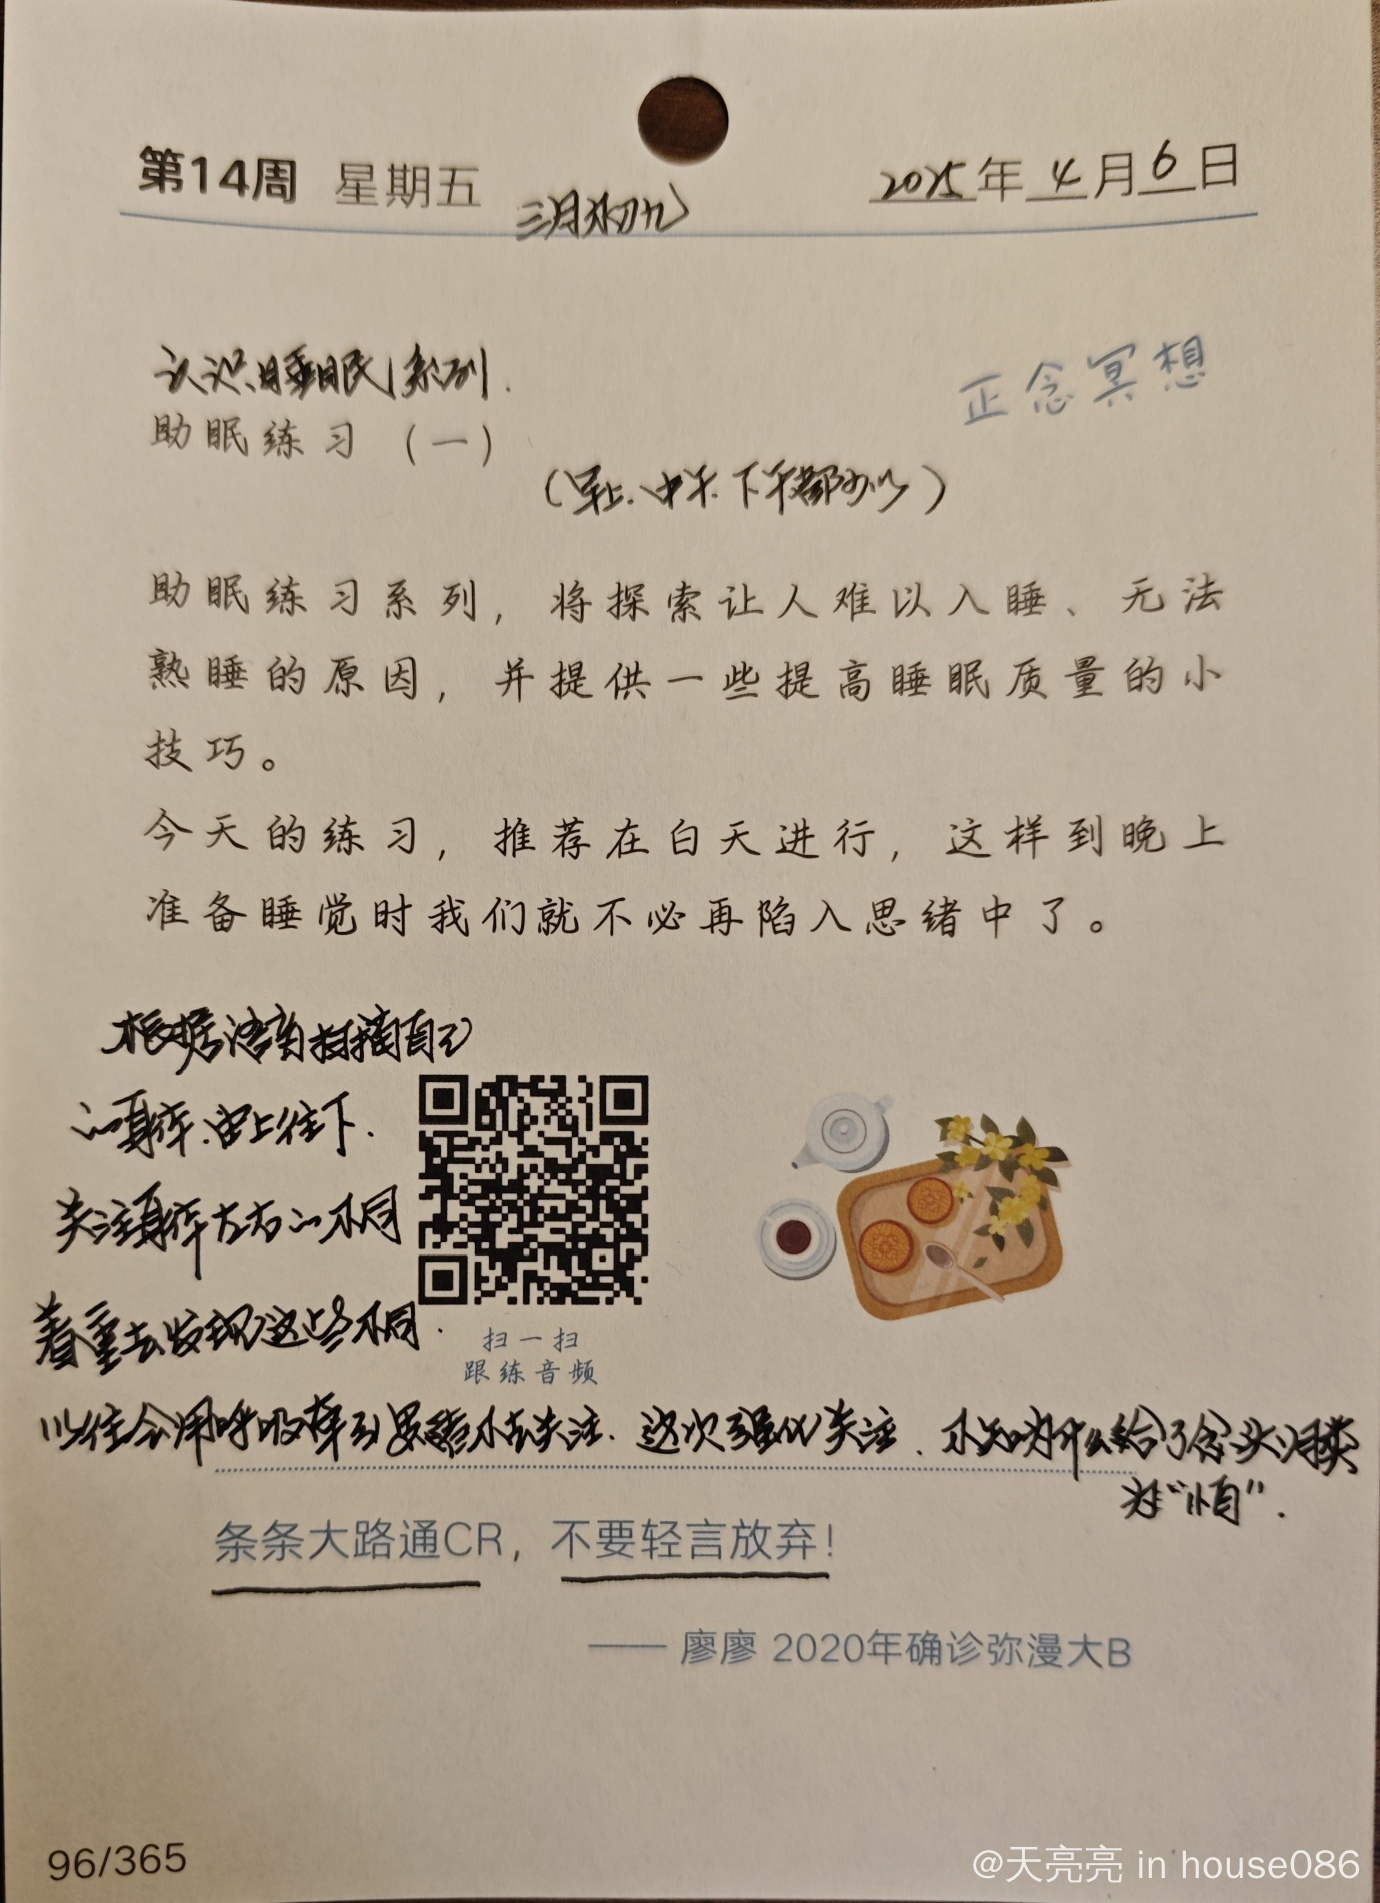 第14周 星期五
三月初九
2025年4月6日
认识睡眠系列.
正念冥想
助眠练习（一）
（早上.中午.下午都可以）
助眠练习系列，将探索让人难以入睡、无法
熟睡的原因，并提供一些提高睡眠质量的小
技巧。
今天的练习，推荐在白天进行，这样到晚上
准备睡觉时我们就不必再陷入思绪中了。
根据语音扫描自己
的身体.由上往下.
关注身体左右的不同
着重去发现这些不同.
扫一扫
跟练音频
以往会用呼吸牵引思绪不去关注.这次强化关注.不知为什么给了念头归类
为“怕”.
条条大路通CR，不要轻言放弃！
—— 廖廖 2020年确诊弥漫大B
96/365
@天亮亮 in house086